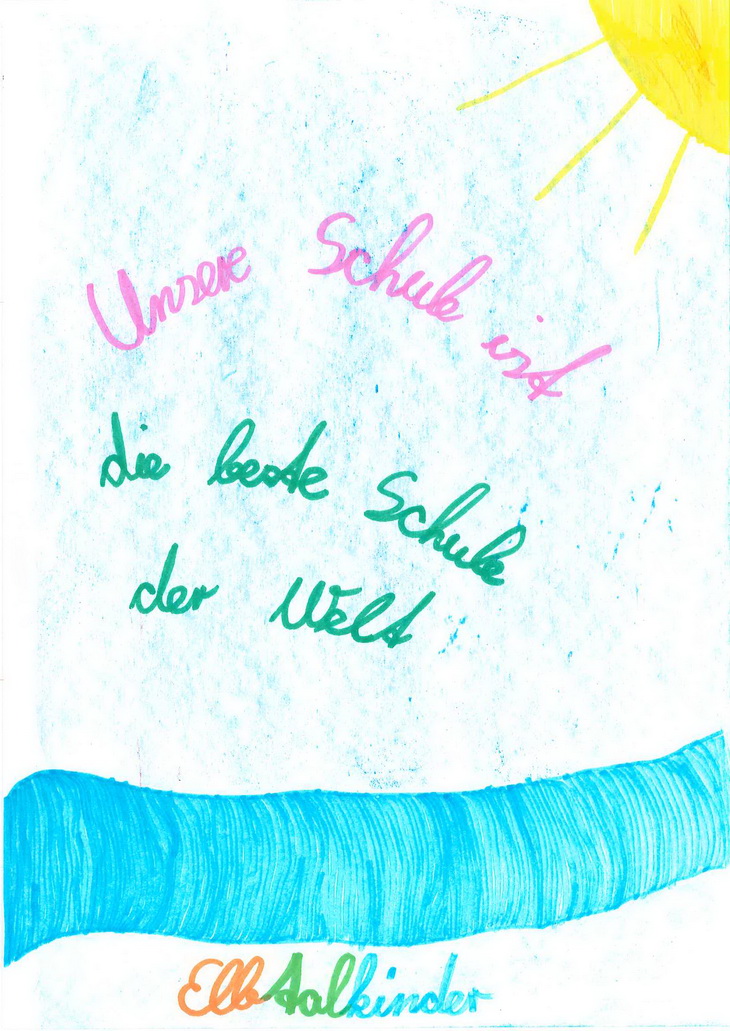 Unsere Schule ist
die beste Schule
der Welt
Elbtalkinder